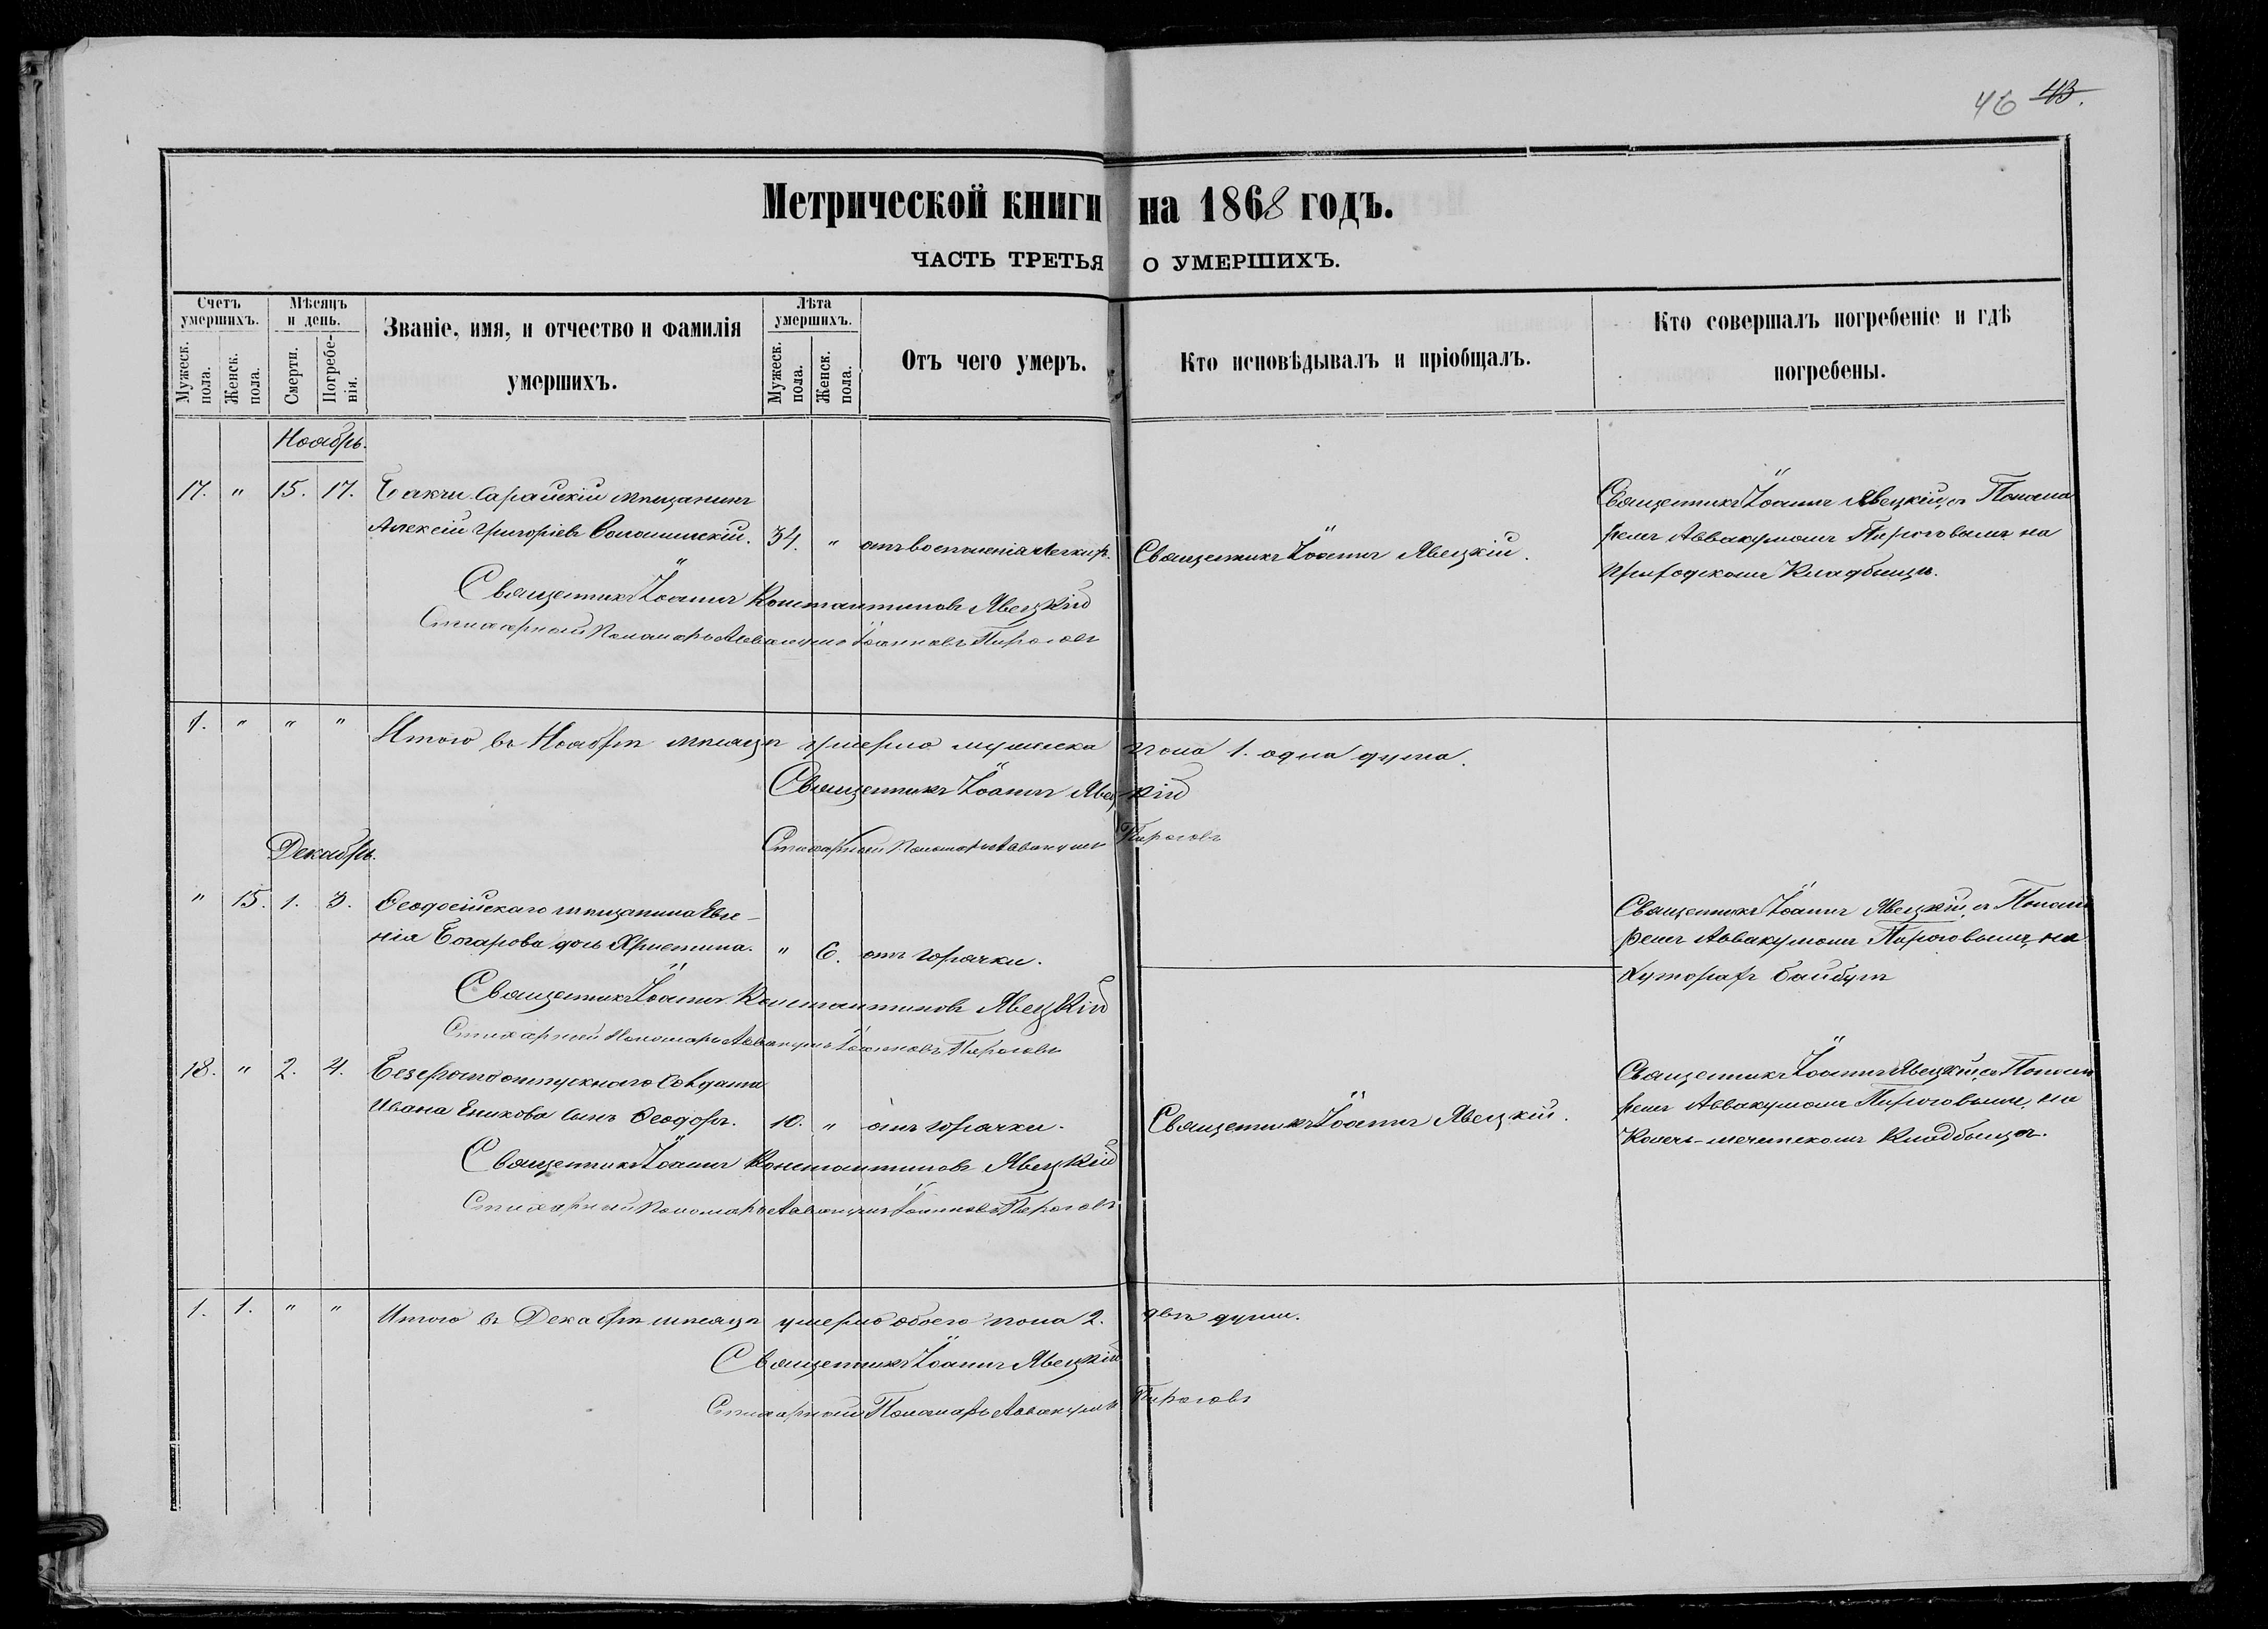 46 43.
Метрической книги на 1868 годъ.
ЧАСТЬ ТРЕТЬЯ О УМЕРШИХЪ.
Счетъ умершихъ.
Мужеск. пола.
Женск. пола.
Мѣсяцъ и день.
Смерти.
Погребе-
нія.
Званіе, имя, и отчество и фамилія
умершихъ.
Лѣта умершихъ.
Мужеск. пола.
Женск. пола.
Отъ чего умеръ.
Кто исповѣдывалъ и пріобщалъ.
Кто совершалъ погребеніе и гдѣ
погребены.
Ноябрь.
17. " 15. 17. Бакчи-Сарайскій мѣщанинъ
Алексій Григоріевъ 34. " отъ воспаленія легкихъ. Священникъ Іоаннъ Явецкій.
Священникъ Іоаннъ Явецкій, съ Понома
ремъ Аввакумомъ Пироговымъ на
приходскомъ Кладбищѣ.
Священникъ Іоаннъ Константиновъ Явецкій
Стихарный Пономарь Аввакумъ Іоанновъ Пироговъ
1. " " " Итого въ Ноябрѣ мѣсяцѣ умерло мужеска пола 1. одна душа.
Священникъ Іоаннъ Явецкій
Стихарный Пономарь Аввакумъ Пироговъ
Декабрь.
" 15. 1. 3. Ѳеодосійскаго мѣщанина Евге-
нія Богарова дочь Христина. " 6. отъ горячки.
Священникъ Іоаннъ Явецкій, съ Понома
ремъ Аввакумомъ Пироговымъ, на
Хуторахъ Байбугѣ
Священникъ Іоаннъ Константиновъ Явецкій
Стихарный Пономарь Аввакумъ Іоанновъ Пироговъ
18. " 2. 4. Безсрочно отпускнаго Солдата
Ивана сынъ Ѳеодоръ. 10. " отъ горячки. Священникъ Іоаннъ Явецкій.
Священникъ Іоаннъ Явецкій, съ Понома
ремъ Аввакумомъ Пироговымъ, на
Колечь-мечетскомъ Кладбищѣ.
Священникъ Іоаннъ Константиновъ Явецкій
Стихарный Пономарь Аввакумъ Іоанновъ Пироговъ
1. 1. " " Итого въ Декабрѣ мѣсяцѣ умерло обоего пола 2. двѣ души.
Священникъ Іоаннъ Явецкій
Стихарный Пономарь Аввакумъ Пироговъ